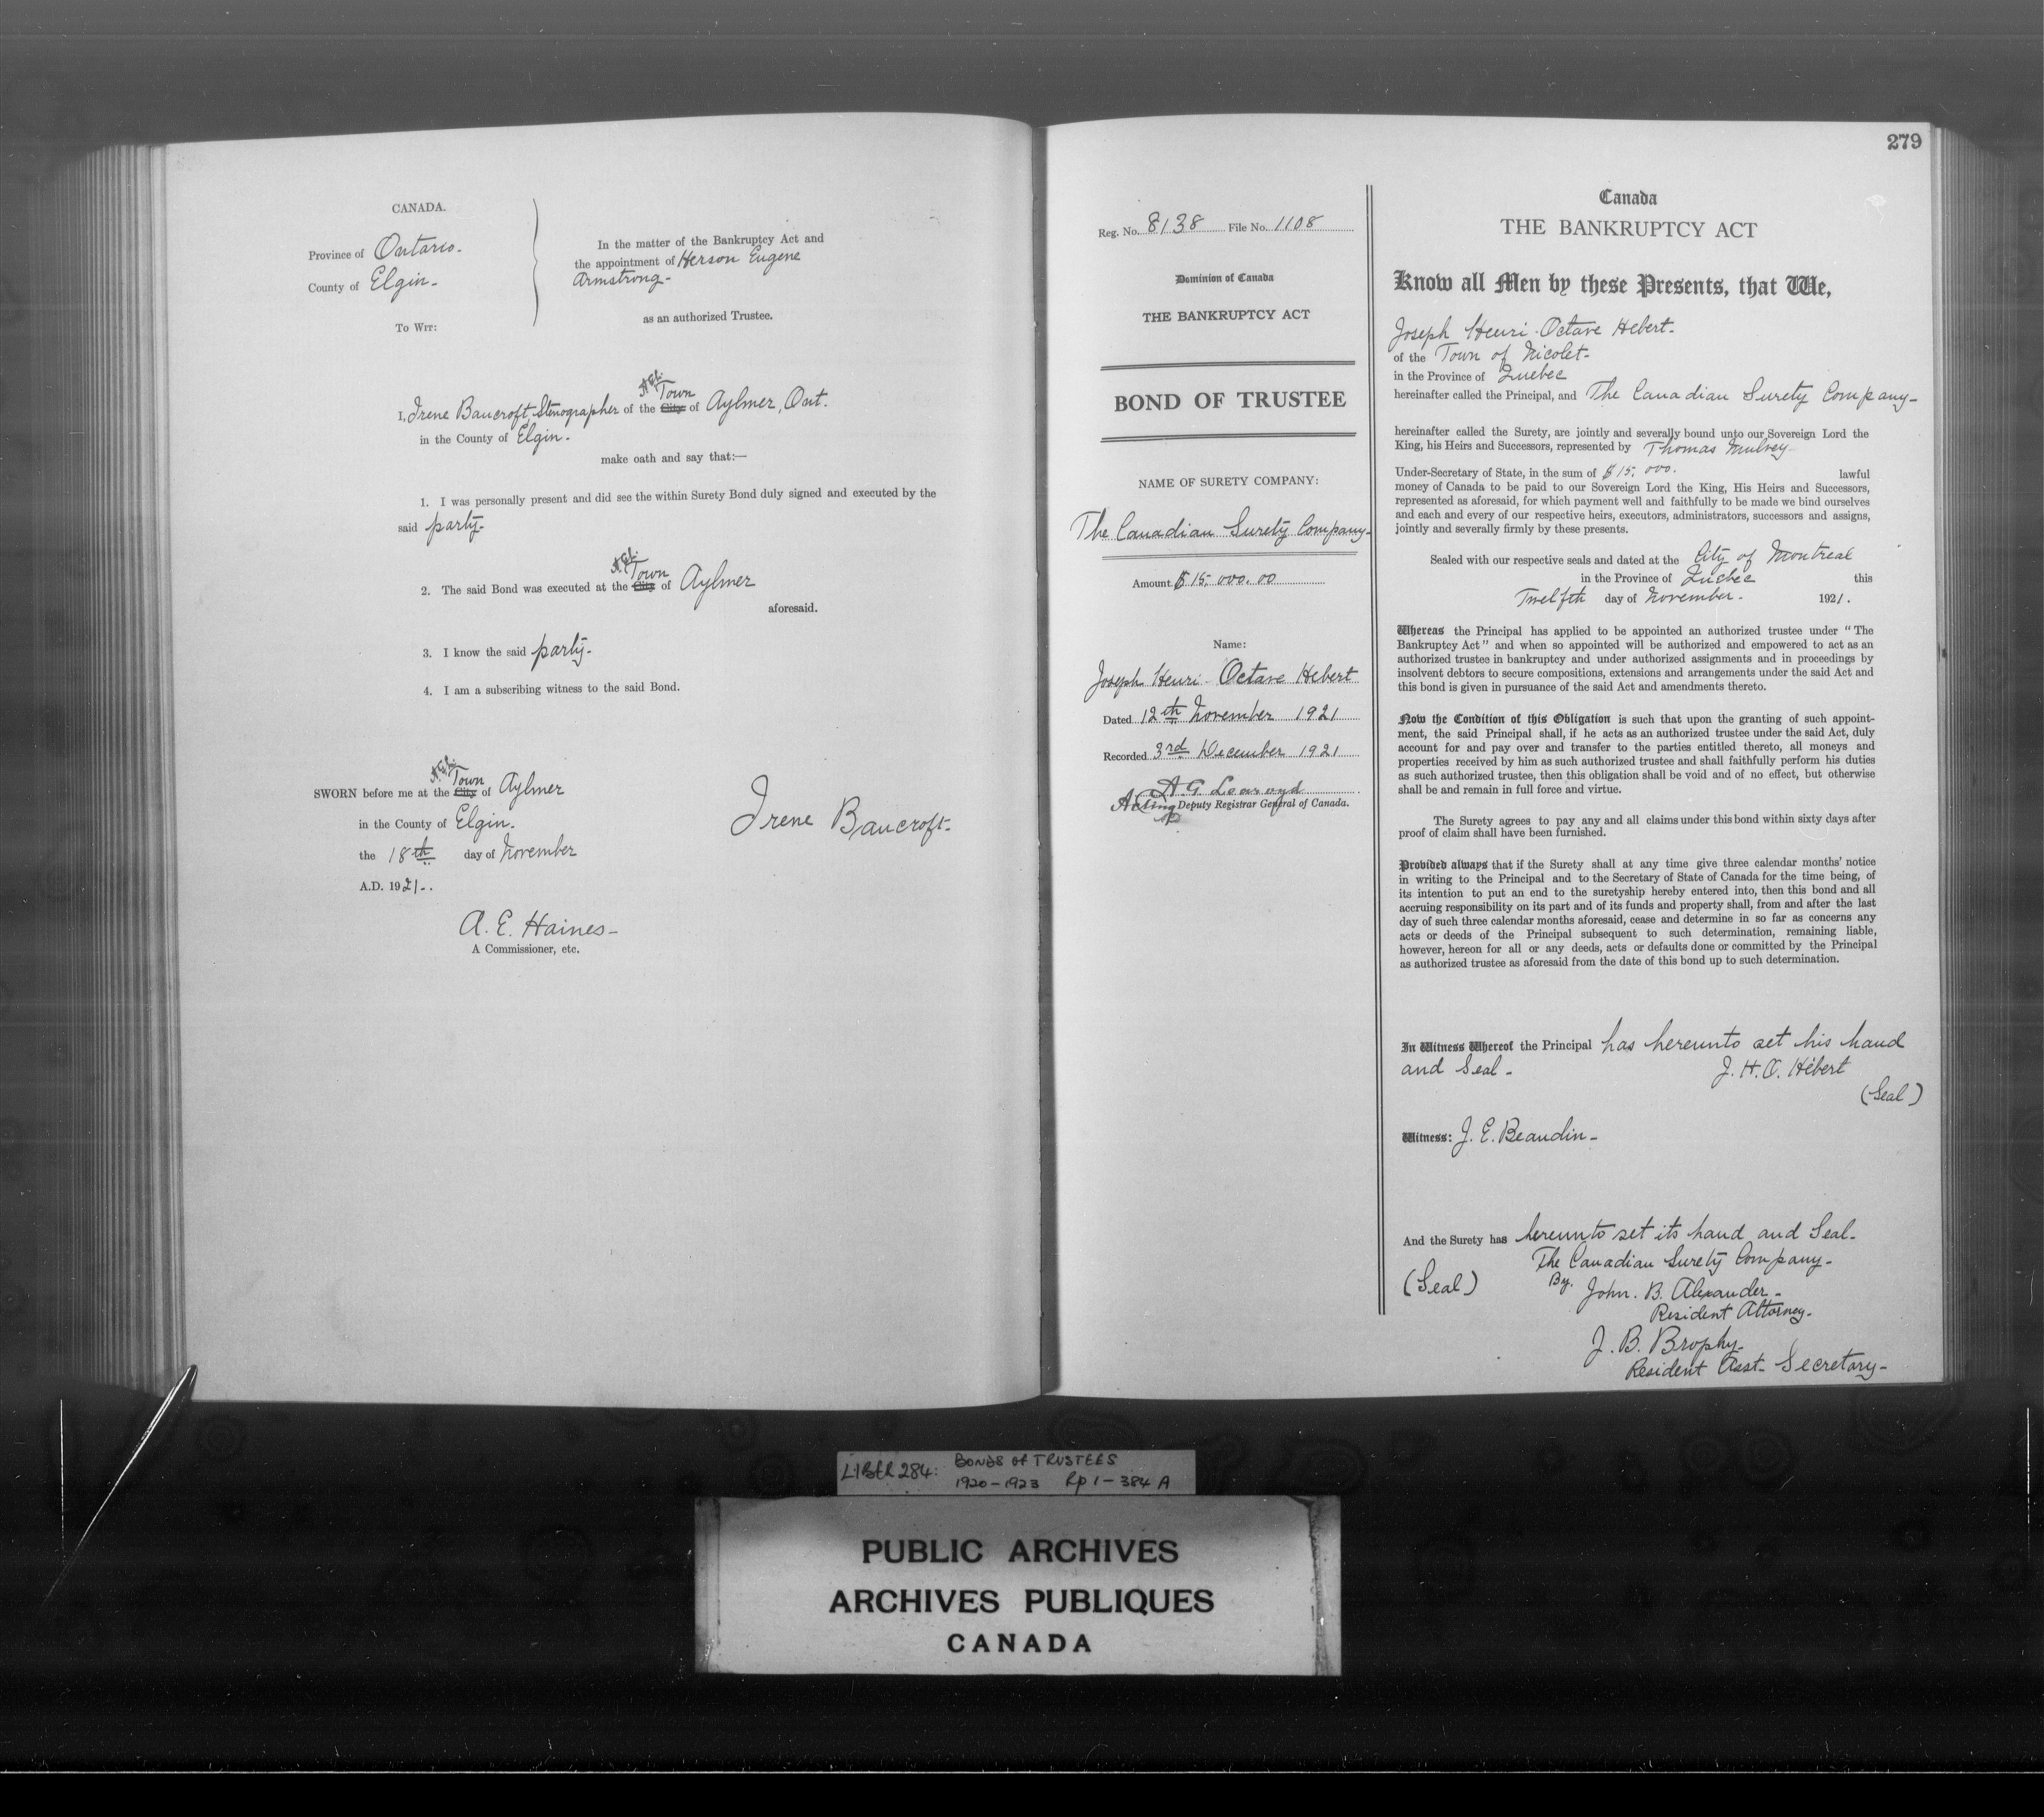 CANADA.
Province of Ontario.
County of Elgin.
To Wit:
In the matter of the Bankruptcy Act and
the appointment of Herson Eugene
Armstrong.
as an authorized Trustee.
Town
I, Irene Bancroft Stenographer of the City of Aylmer, Ont.
in the County of Elgin.
make oath and say that:—
1. I was personally present and did see the within Surety Bond duly signed and executed by the
said party.
Town
2. The said Bond was executed at the City of Aylmer
aforesaid.
3. I know the said party.
4. I am a subscribing witness to the said Bond.
Town
SWORN before me at the City of Aylmer
in the County of Elgin.
the 18th day of November
A.D. 1921.
Irene Bancroft.
A. E. Haines
A Commissioner, etc.
279
Reg. No. 8138 File No. 1108
Dominion of Canada
THE BANKRUPTCY ACT
BOND OF TRUSTEE
NAME OF SURETY COMPANY:
The Canadian Surety Company
Amount $15.000.00
Name:
Joseph Henri Octave Hebert
Dated 12th November 1921
Recorded 3rd December 1921
A G Learoyd
Acting Deputy Registrar General of Canada.
Canada
THE BANKRUPTCY ACT
Know all Men by these Presents, that We,
Joseph Henri Octave Hebert.
of the Town of Nicolet.
in the Province of Quebec
hereinafter called the Principal, and The Canadian Surety Company
hereinafter called the Surety, are jointly and severally bound unto our Sovereign Lord the
King, his Heirs and Successors, represented by Thomas Mulvey
Under-Secretary of State, in the sum of $15.000. lawful
money of Canada to be paid to our Sovereign Lord the King, His Heirs and Successors,
represented as aforesaid, for which payment well and faithfully to be made we bind ourselves
and each and every of our respective heirs, executors, administrators, successors and assigns,
jointly and severally firmly by these presents.
Sealed with our respective seals and dated at the City of Montreal
in the Province of Quebec this
Twelfth day of November. 1921.
Whereas the Principal has applied to be appointed an authorized trustee under "The
Bankruptcy Act" and when so appointed will be authorized and empowered to act as an
authorized trustee in bankruptcy and under authorized assignments and in proceedings by
insolvent debtors to secure compositions, extensions and arrangements under the said Act and
this bond is given in pursuance of the said Act and amendments thereto.
Now the Condition of this Obligation is such that upon the granting of such appoint-
ment, the said Principal shall, if he acts as an authorized trustee under the said Act, duly
account for and pay over and transfer to the parties entitled thereto, all moneys and
properties received by him as such authorized trustee and shall faithfully perform his duties
as such authorized trustee, then this obligation shall be void and of no effect, but otherwise
shall be and remain in full force and virtue.
The Surety agrees to pay any and all claims under this bond within sixty days after
proof of claim shall have been furnished.
Provided always that if the Surety shall at any time give three calendar months' notice
in writing to the Principal and to the Secretary of State of Canada for the time being, of
its intention to put an end to the suretyship hereby entered into, then this bond and all
accruing responsibility on its part and of its funds and property shall, from and after the last
day of such three calendar months aforesaid, cease and determine in so far as concerns any
acts or deeds of the Principal subsequent to such determination, remaining liable,
however, hereon for all or any deeds, acts or defaults done or committed by the Principal
as authorized trustee as aforesaid from the date of this bond up to such determination.
In Witness Whereof the Principal has hereunto set his hand
and Seal.
J. H. O. Hébert
(Seal)
Witness: J. E. Beaudin
And the Surety has hereunto set its hand and Seal.
The Canadian Surety Company.
(Seal)
By. John. B. Alexander.
Resident Attorney.
J. B. Brophy.
Resident Asst. Secretary
LIBER 284: BONDS OF TRUSTEES
1920-1923 Pp 1-384 A
PUBLIC ARCHIVES
ARCHIVES PUBLIQUES
CANADA